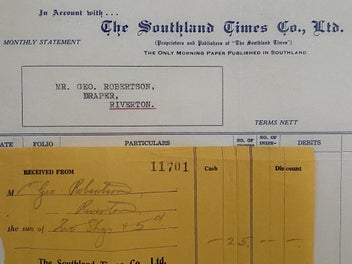 In Account with . . .
The Southland Times Co., Ltd.
MONTHLY STATEMENT
(Proprietors and Publishers of "The Southland Times")
THE ONLY MORNING PAPER PUBLISHED IN SOUTHLAND
MR. GEO. ROBERTSON,
DRAPER,
RIVERTON.
TERMS NETT
DATE FOLIO PARTICULARS NO. OF NO. OF INSER- DEBITS
RECEIVED FROM 11701 Cash Discount
M Geo Robertson,
Riverton
the sum of Two Shgs & 5d
— 2 5 — —
The Southland Times Co. Ltd.